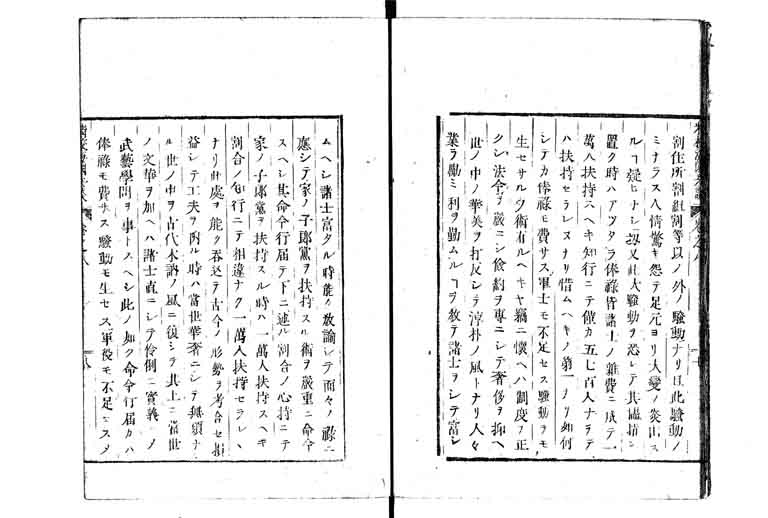 割住所割組割等以ノ外ノ騒動ナリ且此騒動ノ
ミナラス人情驚キ怨テ足元ヨリ大変ノ災出ス
ルヿ疑ヒナシ扨又此大騒動ヲ恐レテ其儘指シ
置ク時ハアツタラ俸祿皆諸士ノ雑費ニ成テ一
萬人扶持スヘキ知行ニテ僅カ五七百人ナラテ
ハ扶持セラレヌナリ惜ムヘキノ第一ナリ如何
シテカ俸祿モ費サス軍士モ不足セス騒動ヲモ
生セサル夕術有ルヘキヤ竊ニ懐ヘハ制度ヲ正
クシ法令ヲ嚴ニシ儉約ヲ專ニシテ奢侈ヲ抑ヘ
世ノ中ノ華美ヲ打反シテ淳朴ノ風トナリ人々
業ヲ勵ミ利ヲ勤ムルヿヲ教テ諸士ヲシテ富シ
ムヘシ諸士富タル時能ク教諭シテ面々ノ祿ニ
應シテ家ノ子郎黨ヲ扶持スル術ヲ嚴重ニ命令
スヘシ其命令行届テ下ニ述ル割合ノ心持ニテ
家ノ子郎黨ヲ扶持スル時ハ一萬人扶持スヘキ
割合ノ知行ニテ相違ナク一萬人扶持セラルヽ
ナリ此處ヲ能ク呑込テ古今ノ形勢ヲ考合セ損
益シテ工夫ヲ為ル時ハ當世華奢ニシテ無頼ナ
ル世ノ中ヲ古代木訥ノ風ニ復シテ其上ニ當世
ノ文華ヲ加ヘハ諸士直ニシテ怜悧ニ實義ニノ
武藝學問ヲ事トスヘシ此ノ如ク命令行届カハ
俸祿モ費サス騒動モ生セス軍役モ不足ニスメ